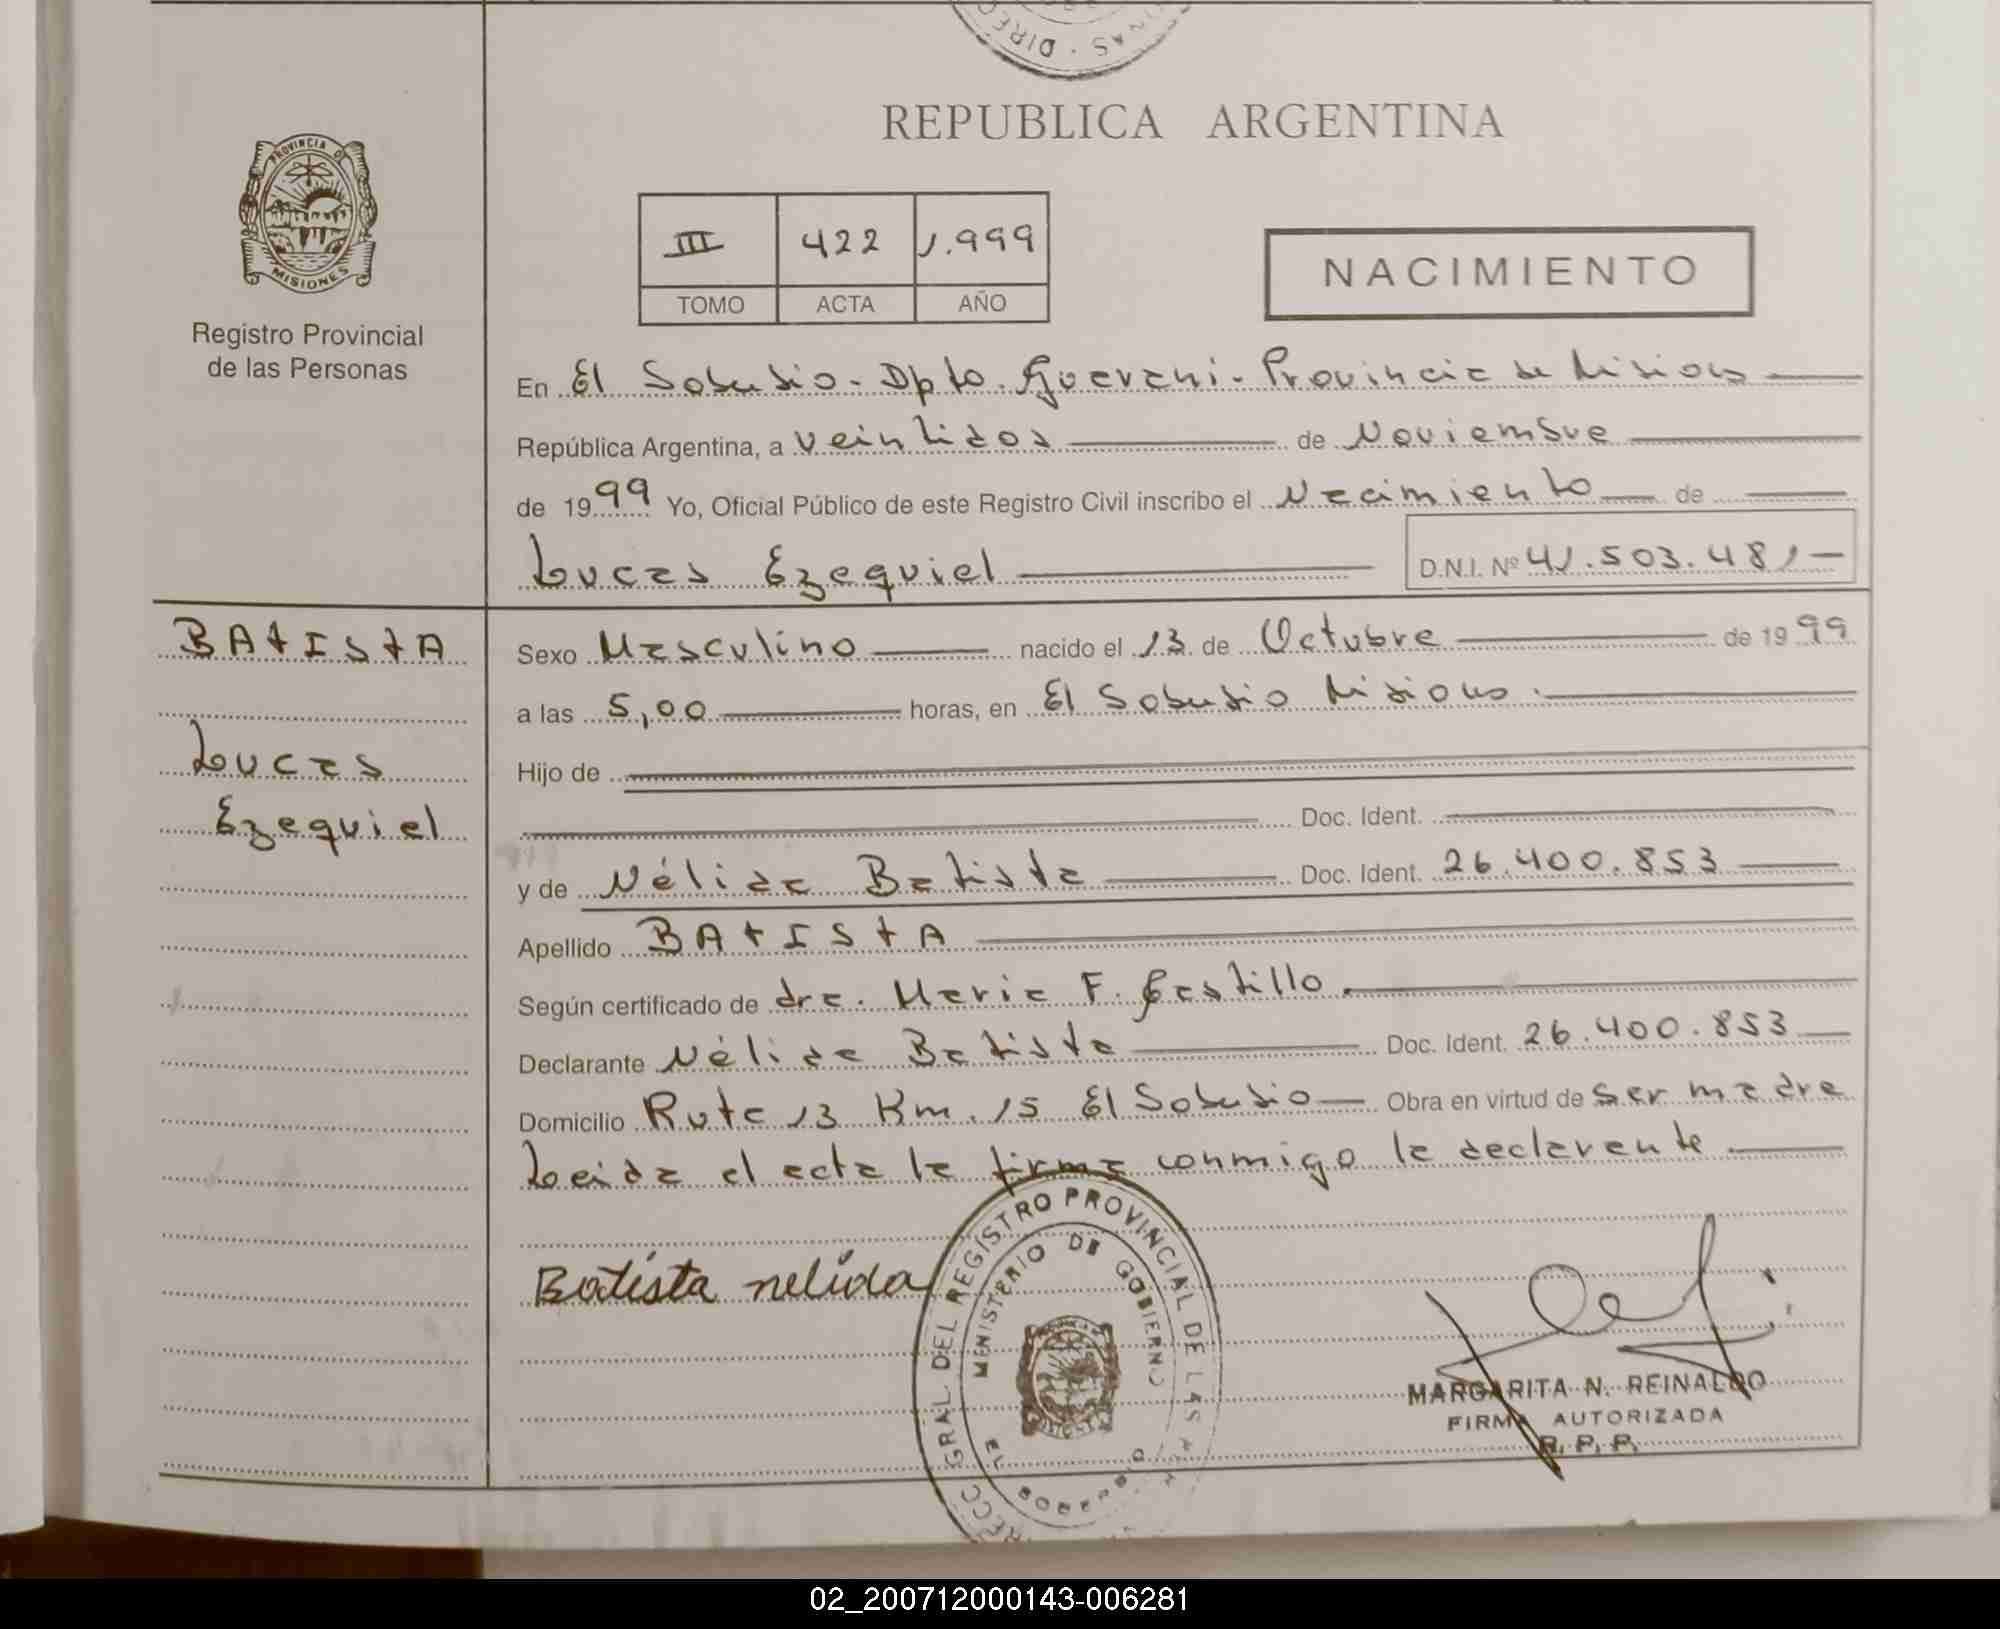 DIREC · · · INAS
REPUBLICA ARGENTINA
PROVINCIA DE
MISIONES
Registro Provincial
de las Personas
III 422 1.999
TOMO ACTA AÑO
NACIMIENTO
En El Soberbio - Dpto. Guarani - Provincia de Misiones
República Argentina, a veintidos de Noviembre
de 1999 Yo, Oficial Público de este Registro Civil inscribo el Nacimiento de
Lucas Ezequiel D.N.I. Nº 41.503.481
BAtIStA
Lucas
Ezequiel
Sexo Masculino nacido el 13 de Octubre de 1999
a las 5,00 horas, en El Soberbio Misiones.
Hijo de
Doc. Ident.
y de Nélida Batista Doc. Ident. 26.400.853
Apellido BAtIStA
Según certificado de dra. Maria F. Castillo.
Declarante Nélida Batista Doc. Ident. 26.400.853
Domicilio Ruta 13 Km. 15 El Soberbio Obra en virtud de ser madre
Leida el acta la firma conmigo la declarante
Batista nelida
RECC GRAL DEL REGISTRO PROVINCIAL DE LAS
MINISTERIO DE GOBIERNO
EL SOBERBIO
MARGARITA N. REINALDO
FIRMA AUTORIZADA
R. P. P.
02_200712000143-006281